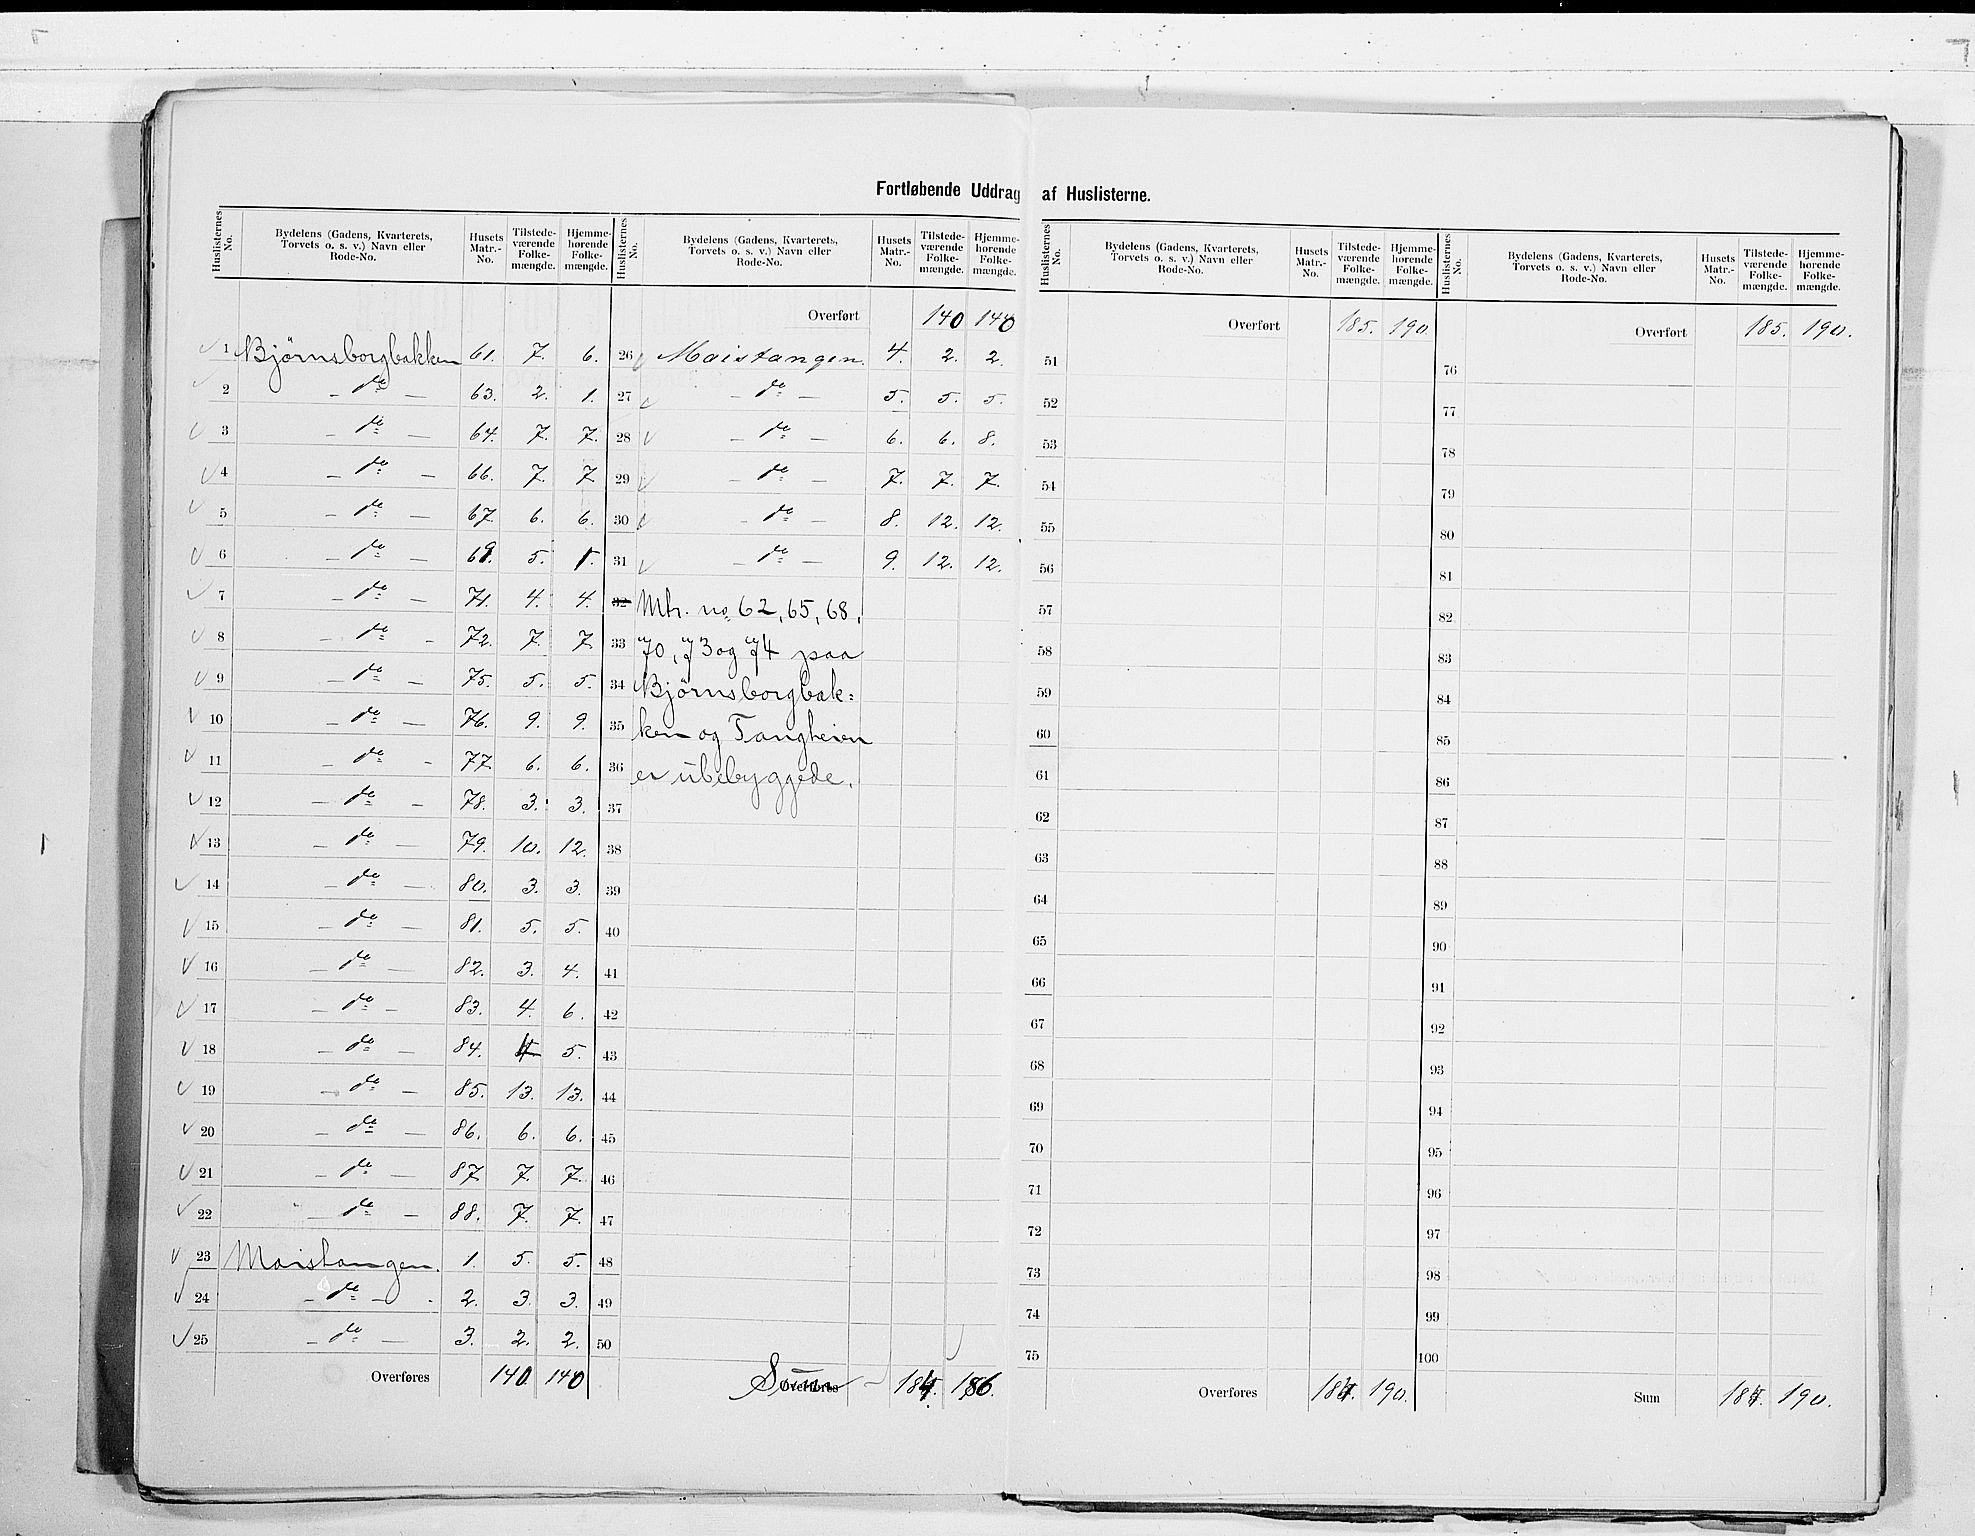 Fortløbende Uddrag af Huslisterne.
Huslisternes No. | Bydelens (Gadens, Kvarterets, Torvets o. s. v.) Navn eller Rode-No. | Husets Matr.-No. | Tilstedeværende Folkemængde. | Hjemmehørende Folkemængde.
1 Bjørnsborgbakken 61. 7. 6.
2 – do – 63. 2. 1.
3 – do – 64. 7. 7.
4 – do – 66. 7. 7
5 – do – 67. 6. 6.
6 – do – 69. 5. 1.
7 – do – 71. 4. 4.
8 – do – 72. 7. 7
9 – do – 75. 5. 5.
10 – do – 76. 9. 9.
11 – do – 77. 6. 6.
12 – do – 78. 3. 3.
13 – do – 79. 10. 12.
14 – do – 80. 3. 3.
15 – do – 81. 5. 5.
16 – do – 82. 3. 4.
17 – do – 83. 4. 6.
18 – do – 84. 4 5.
19 – do – 85. 13. 13.
20 – do – 86. 6. 6.
21 – do – 87 7. 7.
22 – do – 88. 7. 7.
23 Maistangen. 1. 5. 5.
24 – do – 2. 3. 3.
25 – do – 3. 2. 2.
Overføres 140 140
Huslisternes No. | Bydelens (Gadens, Kvarterets, Torvets o. s. v.) Navn eller Rode-No. | Husets Matr.-No. | Tilstedeværende Folkemængde. | Hjemmehørende Folkemængde.
Overført 140 140
26 Maistangen. 4. 2. 2.
27 – do – 5. 5. 5.
28 – do – 6. 6. 8.
29 – do – 7. 7. 7.
30 – do – 8. 12. 12.
31 – do – 9. 12. 12.
32 Mtr. no 62, 65, 68,
33 70, 73 og 74 paa
34 Bjørnsborgbak=
35 ken og Tangheien
36 er ubebyggede.
37
38
39
40
41
42
43
44
45
46
47
48
49
50
Overføres Sum 184. 186.
Huslisternes No. | Bydelens (Gadens, Kvarterets, Torvets o. s. v.) Navn eller Rode-No. | Husets Matr.-No. | Tilstedeværende Folkemængde. | Hjemmehørende Folkemængde.
Overført 185. 190.
51
52
53
54
55
56
57
58
59
60
61
62
63
64
65
66
67
68
69
70
71
72
73
74
75
Overføres 184. 190.
Huslisternes No. | Bydelens (Gadens, Kvarterets, Torvets o. s. v.) Navn eller Rode-No. | Husets Matr.-No. | Tilstedeværende Folkemængde. | Hjemmehørende Folkemængde.
Overført 185. 190.
76
77
78
79
80
81
82
83
84
85
86
87
88
89
90
91
92
93
94
95
96
97
98
99
100
Sum 184. 190.